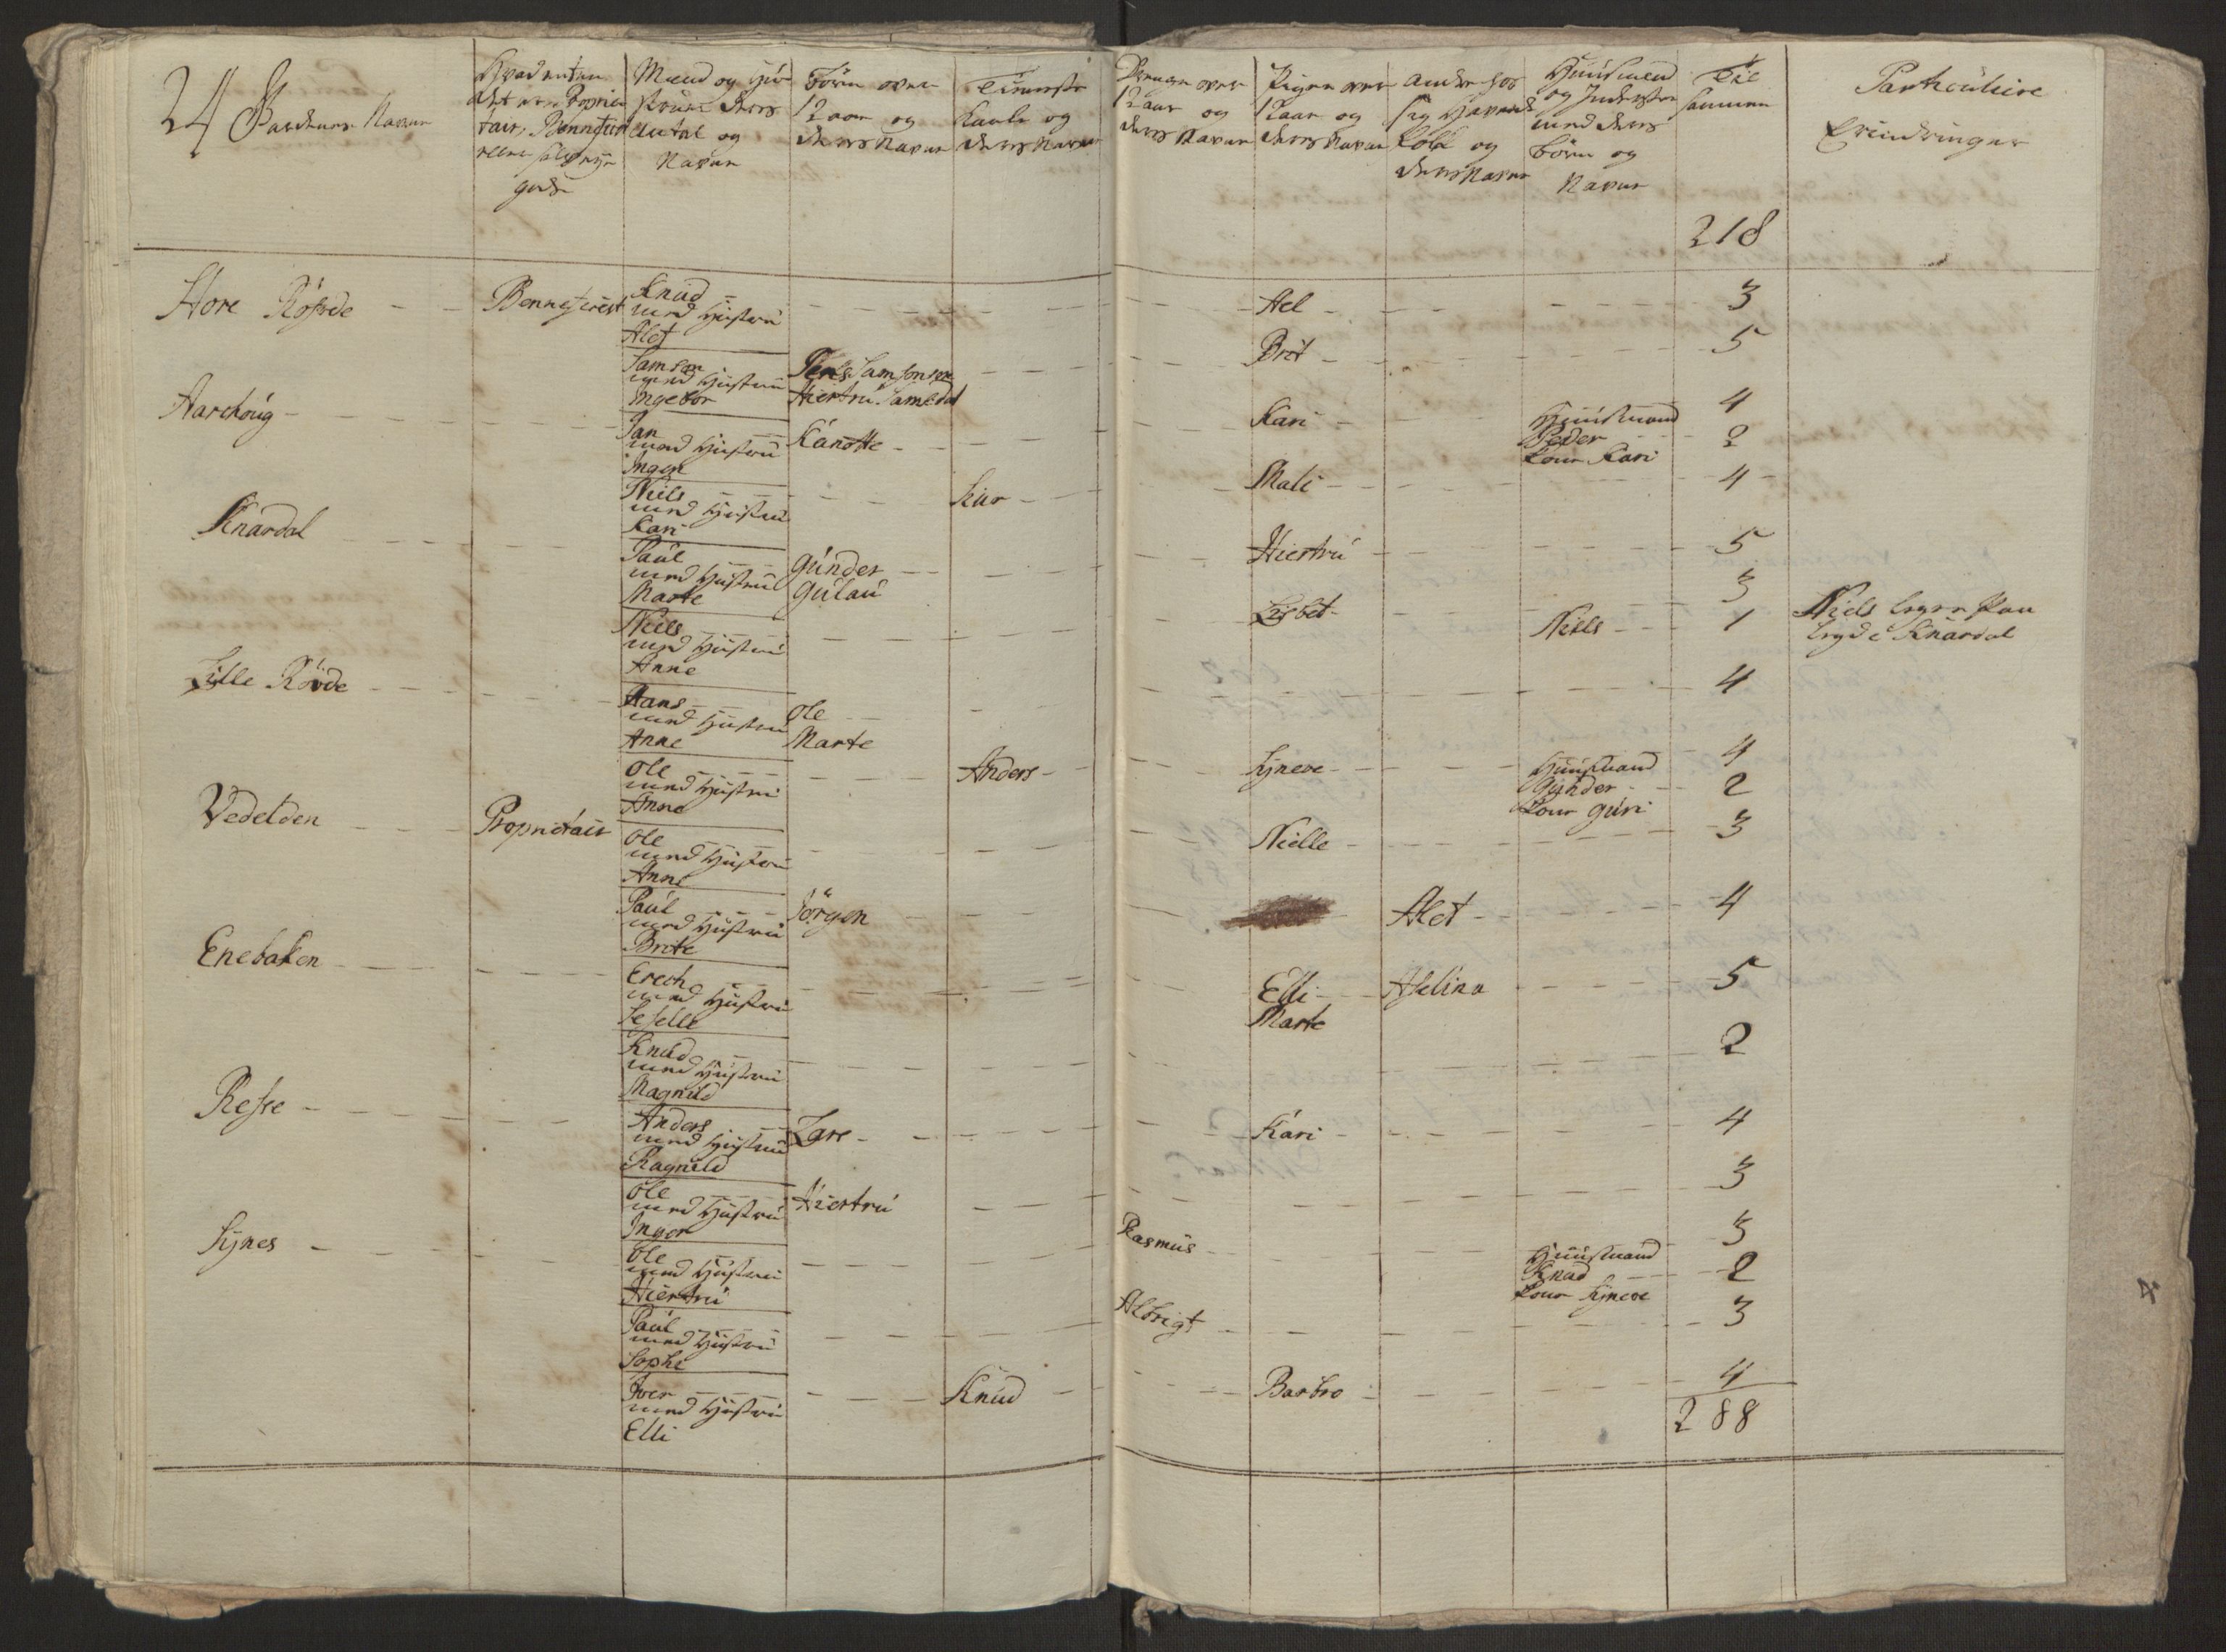 24 Gaardenes Navne
Hvad enten
det er Proprie
tair, Beneficeret
eller selveyer
gods
Mænd og Hu
struer deres
Antal og
Navne
Börn over
12 aar og
deres Navne
Tieneste
Karle og
deres Navne
Drenge over
12 aar og
deres Navne
Piger over
12 aar og
deres Navne
Andre hos
sig havende
folk og
deres Navne
Huusmænd
og Inderster
med deres
börn og
Navne
Til
sammen
Particuliere
Erindringer
218
Store Röfsde
Beneficeret
Knud
med Hustru
Alet
Ael
3
Samson
med Hustru
Ingebor
Jens Samsonsen
Hiertru Samsdat
Brit
5
Aarchoug
Jan
med Hustru
Inger
Kanutte
Kari
4
Huusmand
Peder
Kone Kari
2
Niels
med Hustru
Kari
Kiar
Mali
4
Knardal
Paul
med Hustru
Marte
Gunder
Gulau
Hiertru
5
Niels
med Hustru
Anne
Lisbet
3
Niels
1
Niels
bryde Knardal
Lille Rövde
Hans
med Hustru
Anne
Ole
Marte
4
Ole
med Hustru
Anne
Anders
Syneve
4
Huusmand
Gunder
Kone Guri
2
Vedelden
Proprietair
Ole
med Hustru
Anne
Nielle
3
Paul
med Hustru
Brite
Jörgen
Alet
4
Enebaken
Erech
med Hustru
Seselle
Elli
Marte
Aselina
5
Knud
med Hustru
Magnild
2
Refse
Anders
med Hustru
Ragnild
Lare
Kari
4
Ole
med Hustru
Inger
Hiertru
3
Synes
Ole
med Hustru
Hiertru
Rasmus
3
Huusmand
Knud
Kone Syneve
2
Paul
med Hustru
Sophe
Albrigt
3
Iver
med Hustru
Elli
Knud
Barbro
4
288